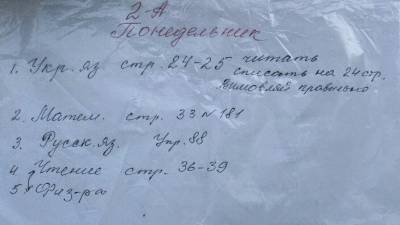 2-А
Понедельник
1. Укр. яз стр. 24-25 читать
списать на 24 стр.
Вимовляй правильно
2. Матем. стр. 33 № 181
3. Русск. яз. Упр. 88
4 Чтение стр. 36-39
5 Физ-ра